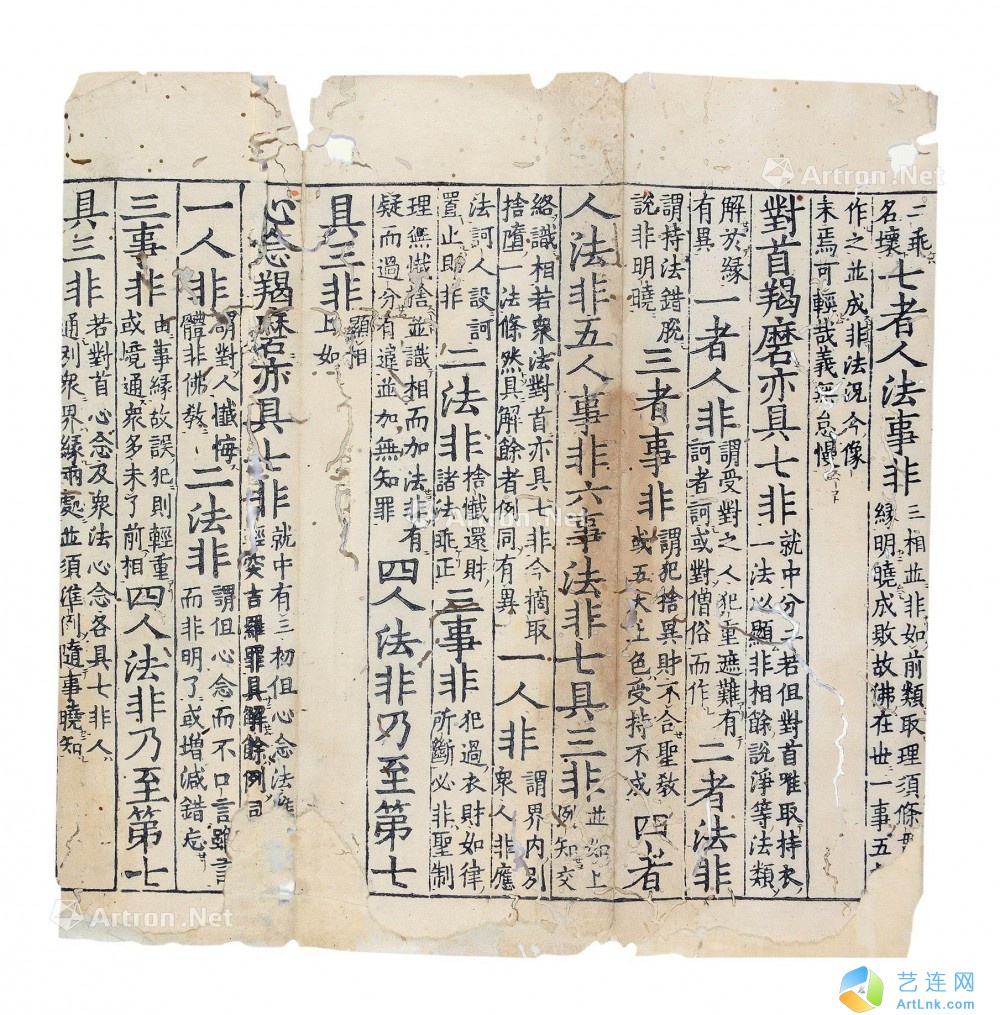 二乘名壞七者人法事非三相並非如前類取理須條緣明曉成敗故佛在世一事五
作之並成非法況今像末焉可輕哉義無怠慢
對首羯磨亦具七非就中分二若但對首唯取持衣一法以顯非相餘說淨等法類
解於緣有異一者人非謂受對之人犯重遮難有訶者訶或對僧俗而作二者法非
謂持法錯脫說非明曉三者事非謂犯捨異財不合聖教或五大上色受持不成四者
人法非五人事非六事法非七具三非並如上例知交
絡識相若衆法對首亦具七非今摘取捨墮一法條然具解餘者例同有異一人非謂界內別衆人非應
法訶人設訶置止即非二法非捨懺還財諸法乖正三事非犯過衣財如律所斷必非聖制
理無懺捨並識相而加法非有疑而過分有違並加無知罪四人法非乃至第七
具三非顯相上如
心念羯磨亦具七非就中有三初但心念法唯輕突吉羅罪具解餘例同
一人非謂對人懺悔體非佛教二法非謂但心念而不口言雖言而非明了或增減錯忘
三事非由事緣故誤犯則輕重或境通衆多未了前相四人法非乃至第七
具三非若對首心念及衆法心念各具七非人通別衆界緣兩處並須準例隨事曉知
Artron.Net
Artron.Net
Artron.Net
Artron.Net
艺连网
ArtLnk.com